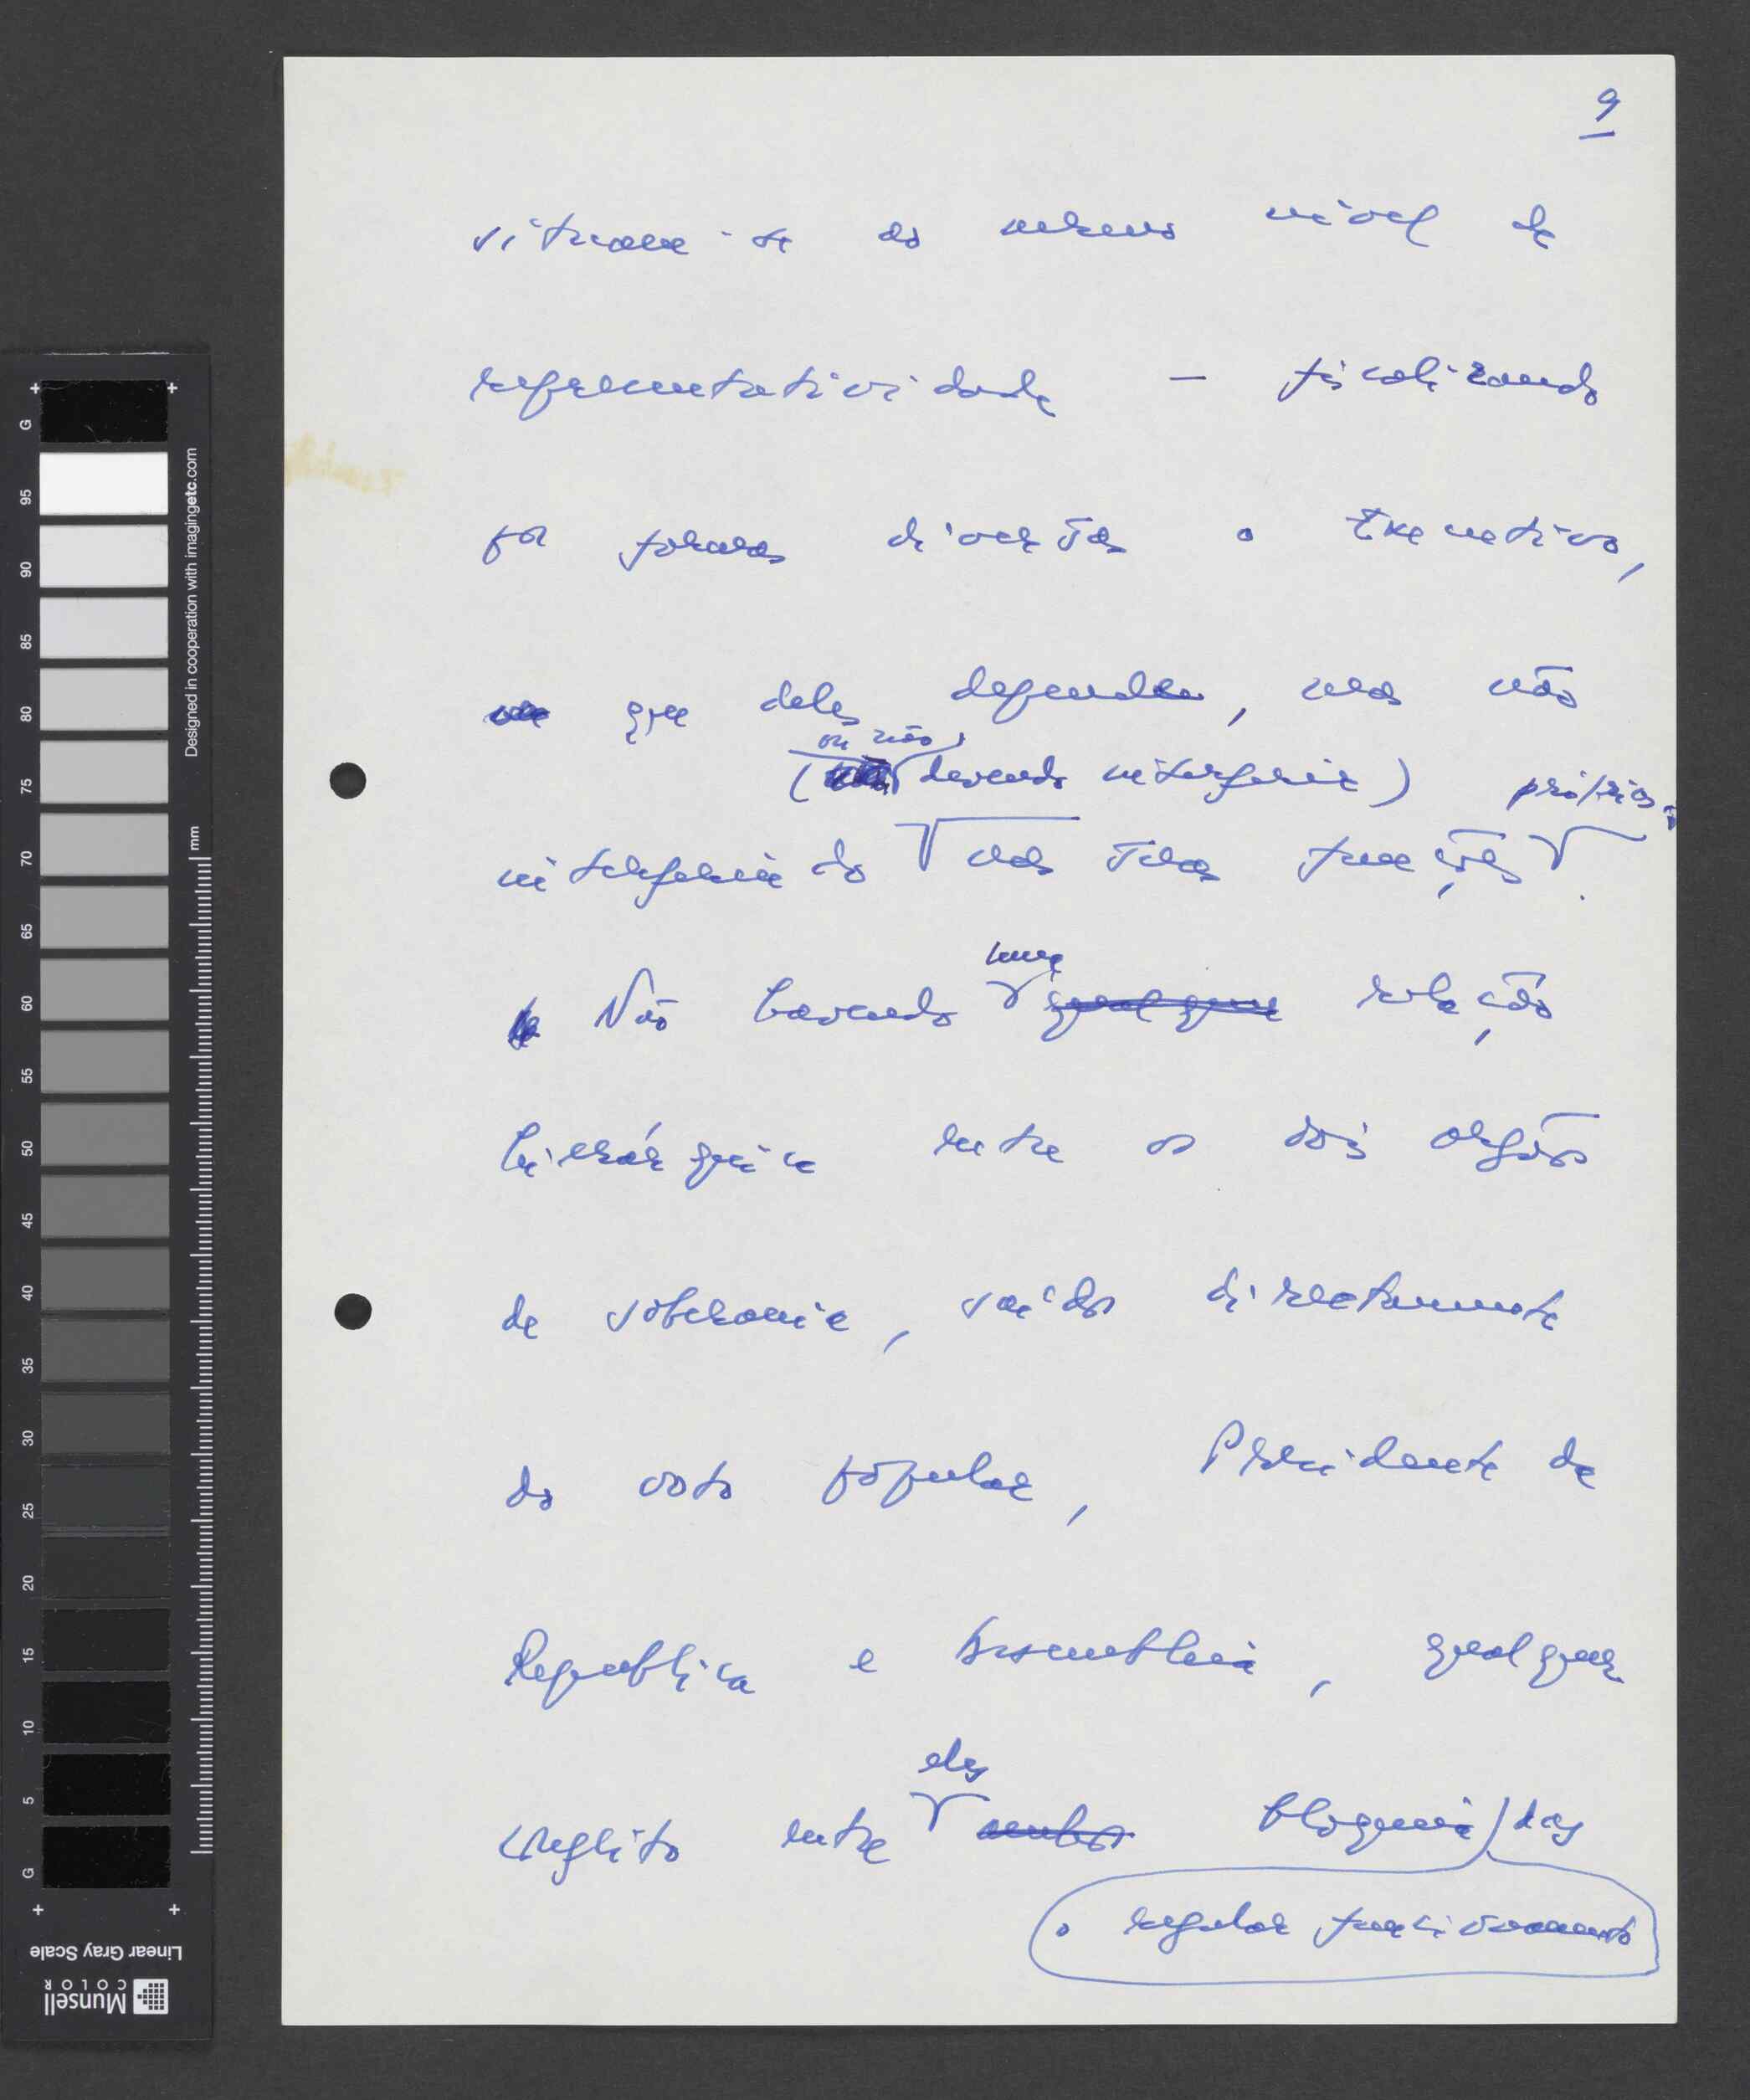 9
situam-se ao mesmo nível de
representatividade — fiscalizando
por formas diversas o Executivo,
que deles depende, mas não
(ou não devendo interferir) próprias
interferindo nas suas funções.
Não havendo uma qualquer relação
hierárquica entre os dois orgãos
de soberania, saídos directamente
do voto popular, Presidente da
Republica e Assembleia, qualquer
eles
conflito entre ambos bloqueia das
o regular funcionamento
G
95
90
85
80
75
70
65
60
55
50
45
40
35
30
25
20
15
10
5
G
Designed in cooperation with imagingetc.com
mm
Linear Gray Scale
Munsell
COLOR